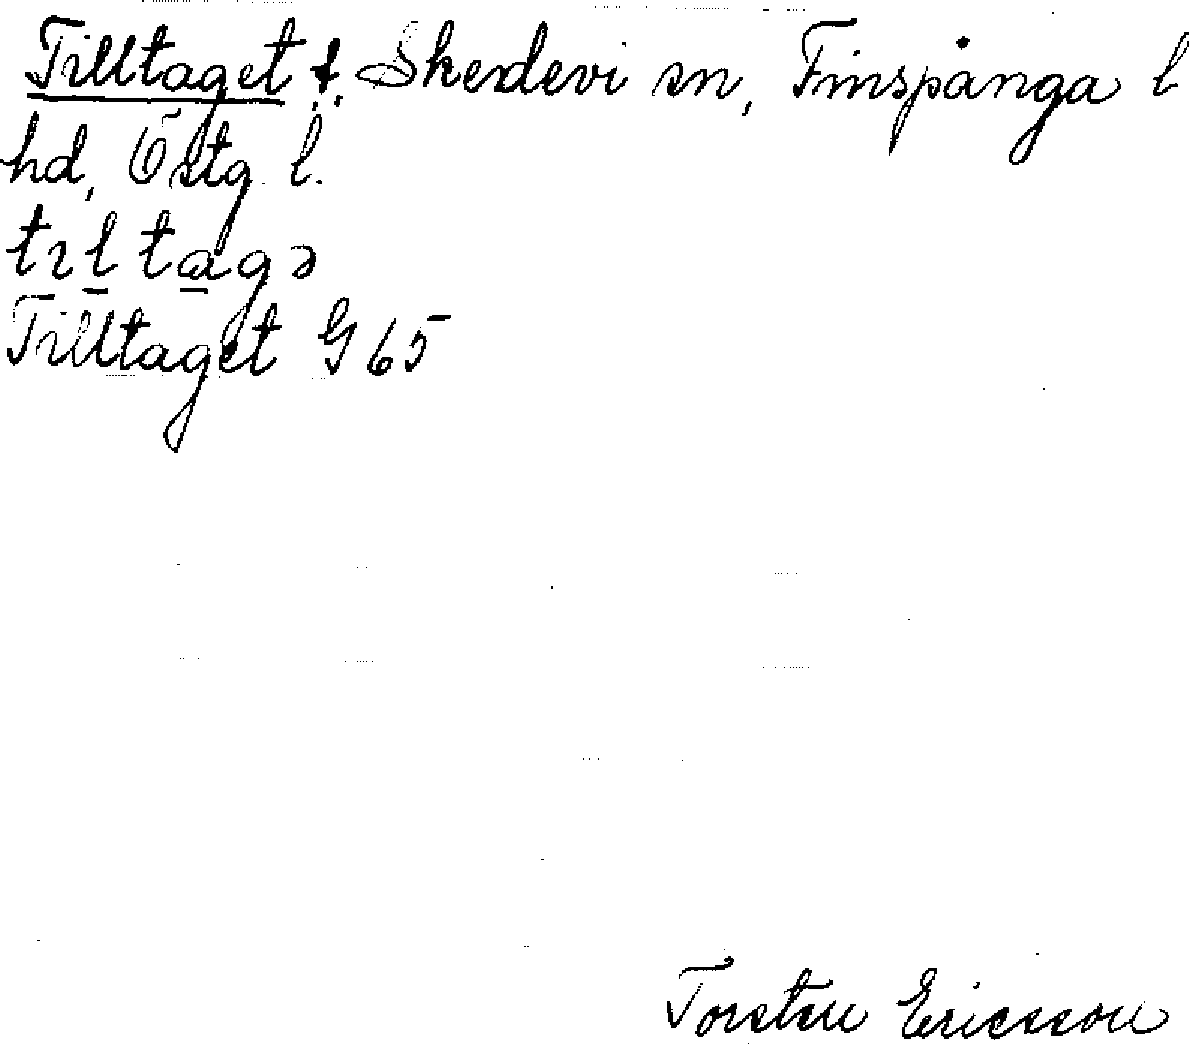 Tilltaget t. Skedevi sn, Finspånga l
hd, Östg. l.
tıl tagə
Tilltaget G 65
Torsten Ericsson